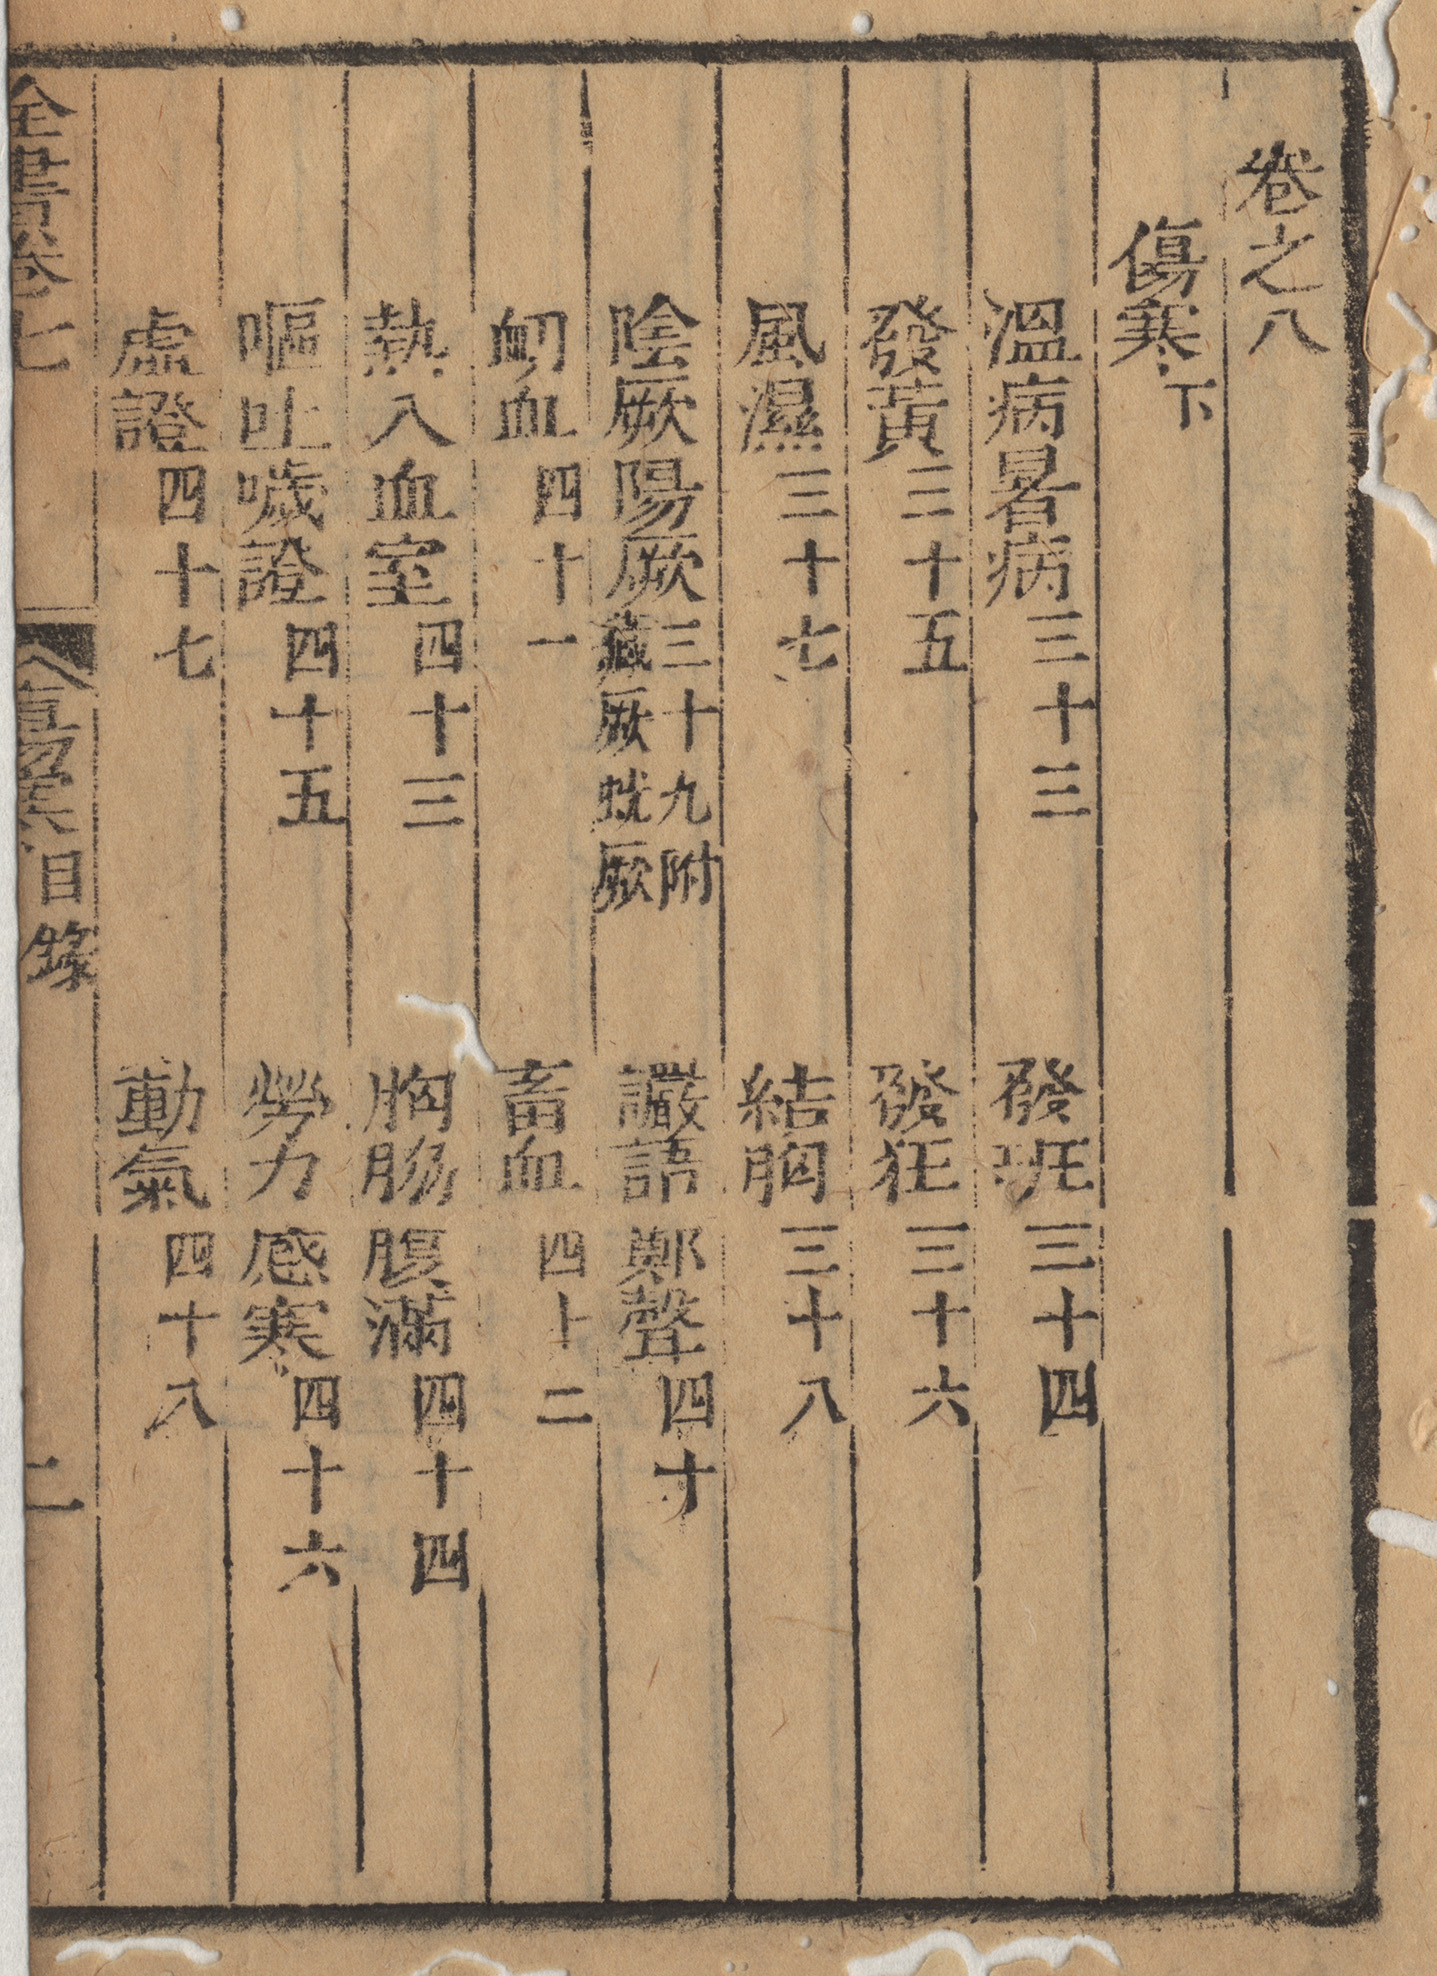 卷之八
傷寒下
溫病暑病三十三 發班三十四
發黃三十五 發狂三十六
風濕三十七 結胸三十八
陰厥陽厥三十九附臟厥蚘厥 讝語鄭聲四十
衂血四十一 畜血四十二
熱入血室四十三 胸脇腹滿四十四
嘔吐噦證四十五 勞力感寒四十六
虛證四十七 動氣四十八
全書卷七 目錄 二